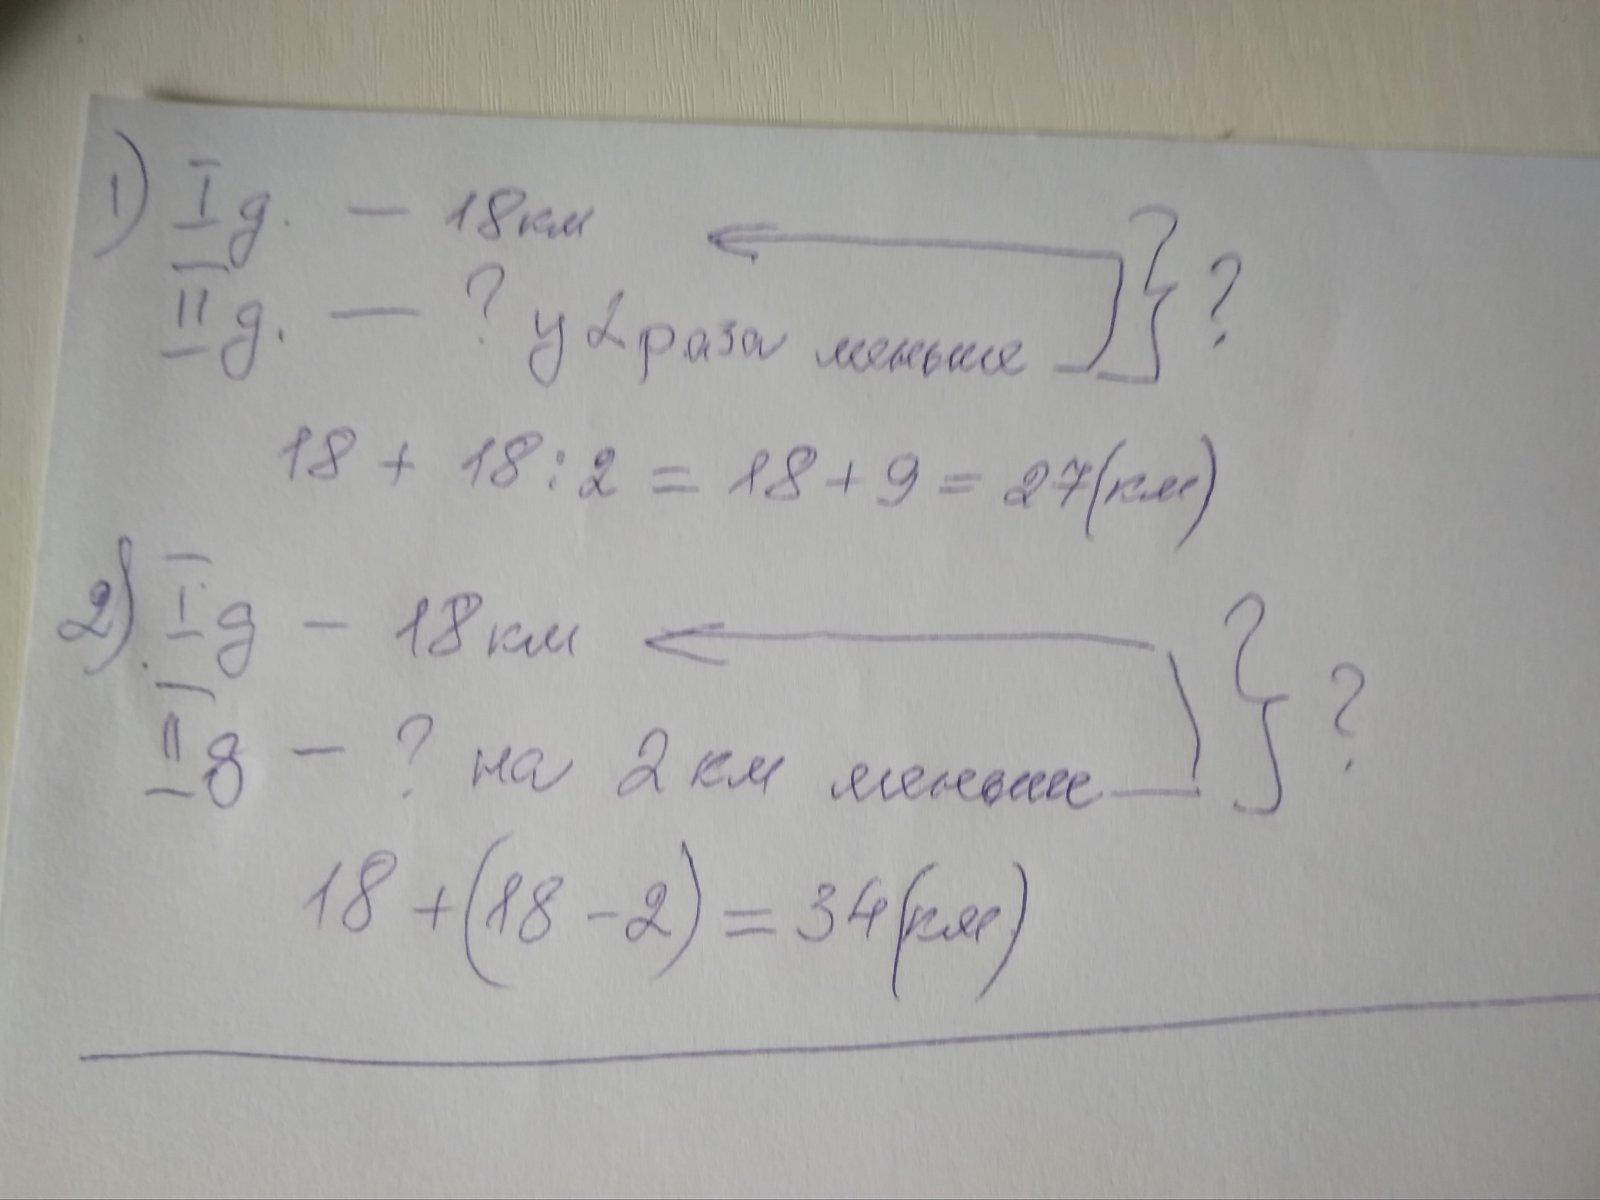 1) I д. — 18 км
II д. — ? у 2 раза меньше } ?
18 + 18 : 2 = 18 + 9 = 27 (км)
2) I д — 18 км
II д — ? на 2 км меньше } ?
18 + (18 - 2) = 34 (км)